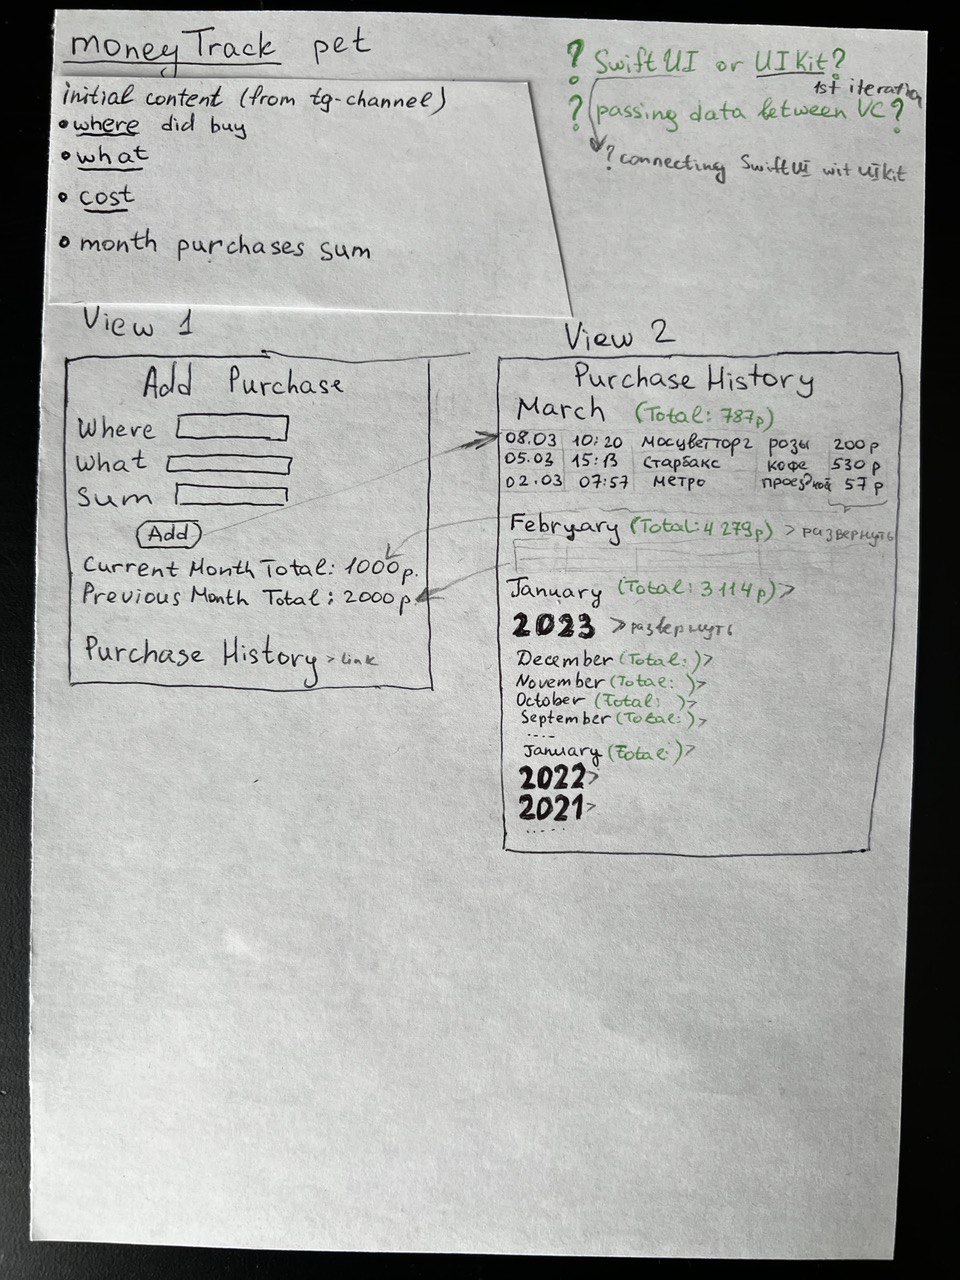 moneyTrack pet
initial content (from tg-channel)
• where did buy
• what
• cost
• month purchases sum
? SwiftUI or UIKit?
1st iteration
? passing data between VC?
? connecting SwiftUI wit UIkit
View 1
Add Purchase
Where
What
Sum
Add
Current Month Total: 1000р.
Previous Month Total: 2000р
Purchase History > Link
View 2
Purchase History
March (Total: 787р)
08.03 10:20 Мосцветторг розы 200р
05.03 15:13 Старбакс кофе 530р
02.03 07:57 метро проездной 57р
February (Total: 4 279р) > развернуть
January (Total: 3 114р) >
2023 > развернуть
December (Total:) >
November (Total: ) >
October (Total: ) >
September (Total:) >
.....
January (Total:) >
2022 >
2021 >
.....